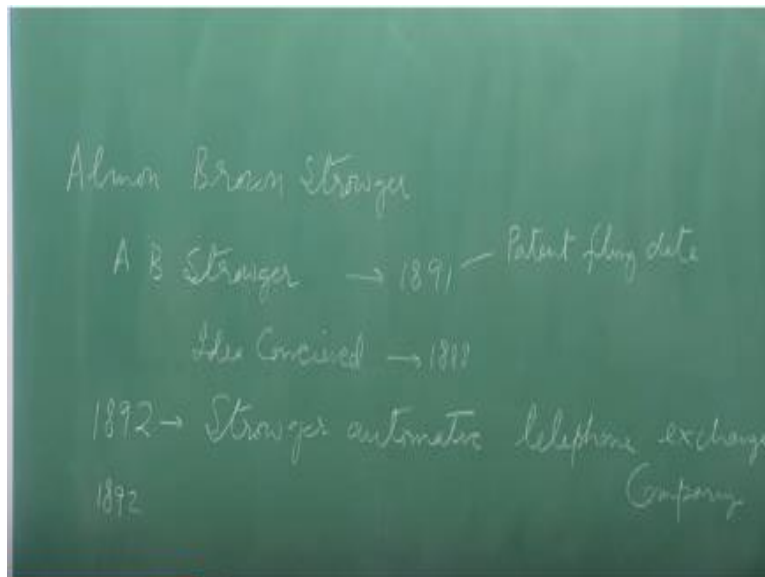 Almon Brown Strowger
A B Strowger → 1891 — Patent filing date
Idea Conceived → 1888
1892 → Strowger automatic telephone exchange
Company
1892